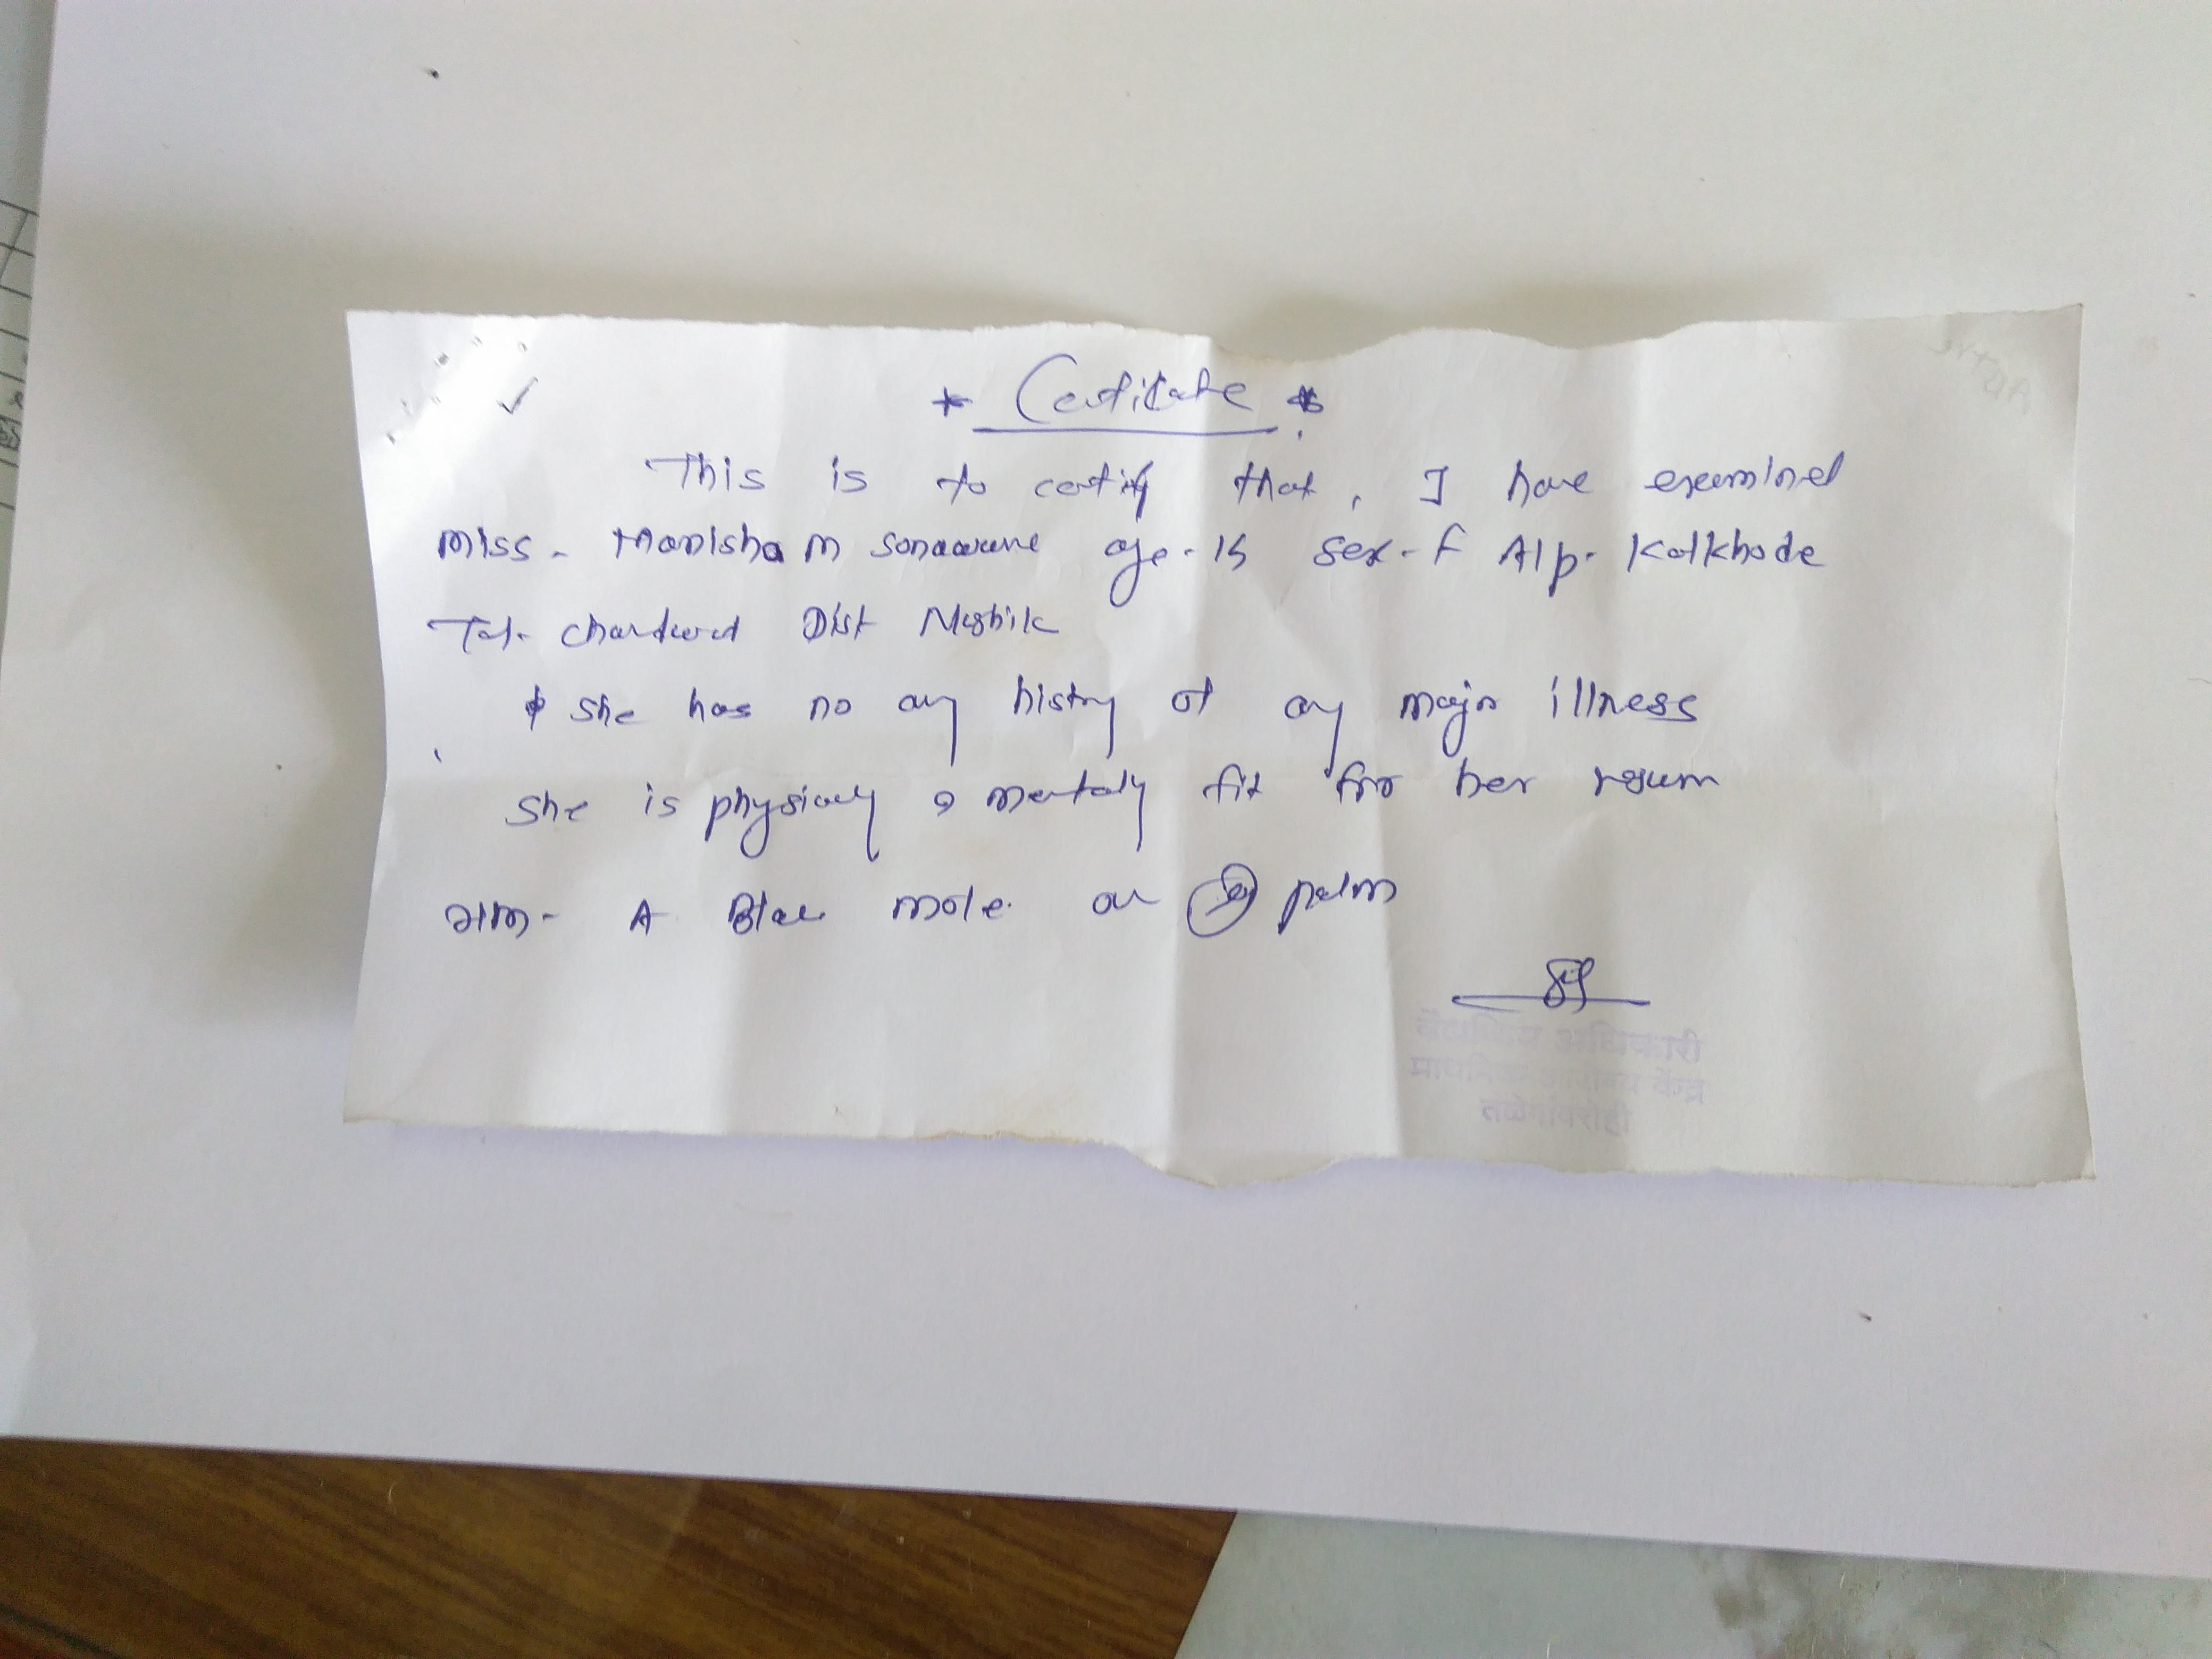 * Certificate *
This is to certify that, I have examined
Miss - Manisha M Sonawane age - 15 Sex - F A/p. Kalkhode
Tal. Chandwad Dist Nashik
She has no any histry of any major illness
She is physicaly & mentaly fit for her
A mole on palm
वैद्यकिय अधिकारी
प्राथमिक आरोग्य केंद्र
तळेगांवरोही